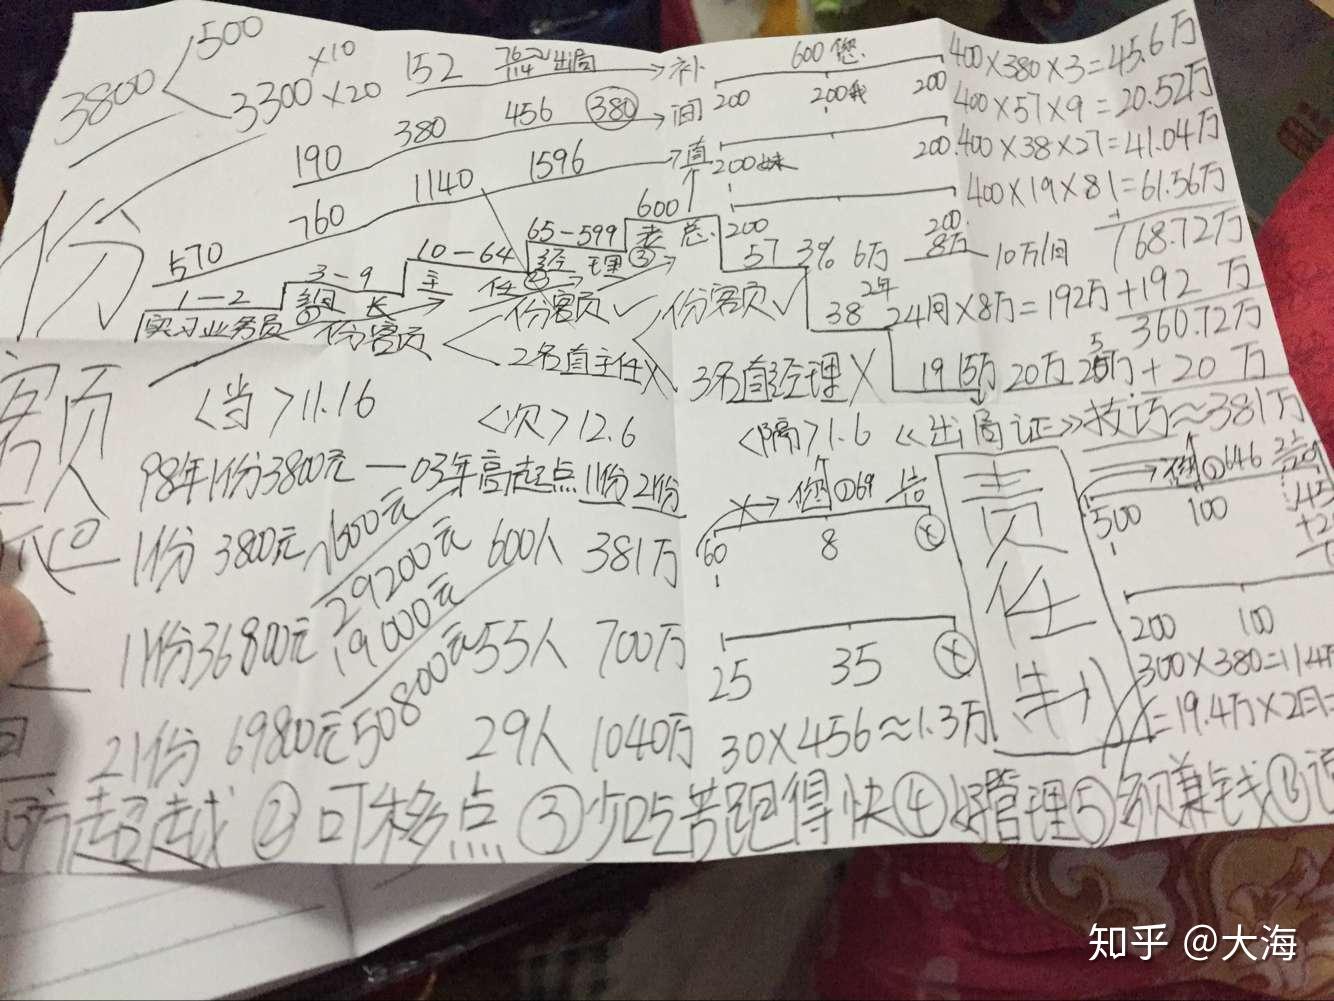 3800 500
3300 ×10
×20
152 76 114 出局 → 补
190 380 456 380 → 间
570 760 1140 1596 → 直
600您
200 200我 200
200妹 200
200 200
400×380×3=45.6万
400×57×9=20.52万
400×38×27=41.04万
400×19×81=61.56万
168.72万
+192万
360.72万
+20万
≈381万
份额
1—2 3—9 10—64 65—599 600
实习业务员 组长 主任 经理 老总
份额 份额 份额
2名直主任 3名直经理
57 3% 6万 8万 10万/月
38 2年 24月×8万=192万
19 15万 20万 25万
<当>11.16 <次>12.6 <隔>1.6 《出局证》技巧
98年1份3800元—03年高起点11份21份
1份 3800元 7600元 600人 381万
11份36800元 29200元 19000元 55人 700万
21份 69800元 50800元 29人 1040万
60 8
25 35
30×456≈1.3万
责任制
①69
①646
500 100
200 100
300×380=114万
=19.4万×2月=
超越②可移点③少吃苦跑得快④好管理⑤多赚钱⑥
知乎 @大海